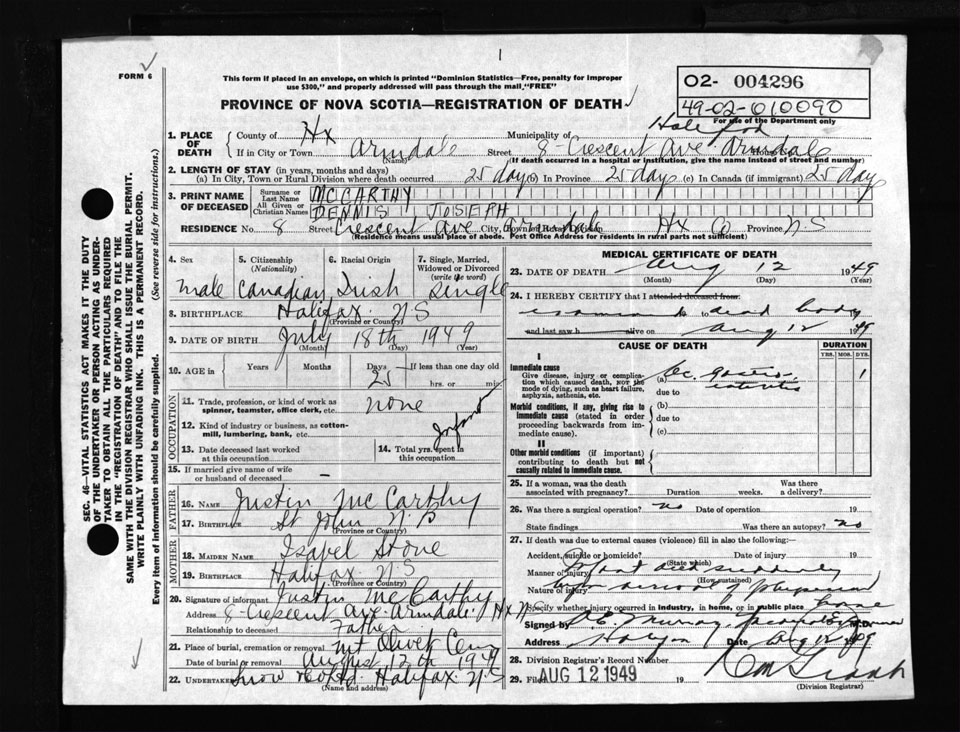 1
FORM 6
This form if placed in an envelope, on which is printed "Dominion Statistics—Free, penalty for improper
use $300," and properly addressed will pass through the mail "FREE"
PROVINCE OF NOVA SCOTIA—REGISTRATION OF DEATH
O2- 004296
49-02-010090
For use of the Department only
1. PLACE OF DEATH
County of Hx
Municipality of Halifax
If in City or Town Armdale Street 8-Crescent Ave Armdale
(Name)
(If death occurred in a hospital or institution, give the name instead of street and number)
2. LENGTH OF STAY (in years, months and days)
(a) In City, Town or Rural Division where death occurred 25 days (b) In Province 25 days (c) In Canada (if immigrant) 25 days
3. PRINT NAME OF DECEASED
Surname or Last Name MCCARTHY
All Given or Christian Names DENNIS JOSEPH
RESIDENCE No. 8 Street Crescent Ave City, Town or Rural Division Armdale Hx Co Province N.S
(Residence means usual place of abode. Post Office Address for residents in rural parts not sufficient)
4. Sex
male
5. Citizenship
(Nationality)
Canadian
6. Racial Origin
Irish
7. Single, Married,
Widowed or Divorced
(write the word)
Single
8. BIRTHPLACE Halifax N.S
(Province or Country)
9. DATE OF BIRTH July 18th 1949
(Month) (Day) (Year)
10. AGE in Years Months Days 25 If less than one day old
hrs. or min.
OCCUPATION
11. Trade, profession, or kind of work as
spinner, teamster, office clerk, etc. none
12. Kind of industry or business, as cotton-
mill, lumbering, bank, etc.
13. Date deceased last worked
at this occupation
14. Total yrs. spent in
this occupation
15. If married give name of wife
or husband of deceased –
FATHER
16. NAME Justin McCarthy
17. BIRTHPLACE St John N.B
(Province or Country)
MOTHER
18. MAIDEN NAME Isabel Stone
19. BIRTHPLACE Halifax N.S
(Province or Country)
20. Signature of informant Justin McCarthy
Address 8-Crescent Ave Armdale Hx N.S.
Relationship to deceased Father
21. Place of burial, cremation or removal Mt Olivet Cem
Date of burial or removal August 12th 1949
22. UNDERTAKER Snow & Co Ltd. Halifax N.S
(Name and address)
MEDICAL CERTIFICATE OF DEATH
23. DATE OF DEATH Aug 12 1949
(Month) (Day)
24. I HEREBY CERTIFY that I attended deceased from:
dead body
and last saw h alive on Aug 12 1949
CAUSE OF DEATH
DURATION
YRS. MOS. DYS.
I
Immediate cause
Give disease, injury or complica-
tion which caused death, NOT the
mode of dying, such as heart failure,
asphyxia, asthenia, etc.
(a) Ac. gastro- enteritis 1
due to
Morbid conditions, if any, giving rise to
immediate cause (stated in order
proceeding backwards from im-
mediate cause).
(b)
due to
(c)
II
Other morbid conditions (if important)
contributing to death but not
causally related to immediate cause.
25. If a woman, was the death
associated with pregnancy? Duration weeks. Was there
a delivery?
26. Was there a surgical operation? no Date of operation 19
State findings Was there an autopsy? no
27. If death was due to external causes (violence) fill in also the following:
Accident, suicide or homicide? Date of injury 19
(State which)
Manner of injury Infant died suddenly
(How sustained)
Nature of injury before arrival of physician
Specify whether injury occurred in industry, in home, or in public place
Signed by Murray
Address Halifax Date Aug 12 1949
28. Division Registrar's Record Number
29. Filed AUG 12 1949 19
(Division Registrar)
SEC. 46—VITAL STATISTICS ACT MAKES IT THE DUTY
OF THE UNDERTAKER OR PERSON ACTING AS UNDER-
TAKER TO OBTAIN ALL THE PARTICULARS REQUIRED
IN THE "REGISTRATION OF DEATH" AND TO FILE THE
SAME WITH THE DIVISION REGISTRAR WHO SHALL ISSUE THE BURIAL PERMIT.
WRITE PLAINLY WITH UNFADING INK. THIS IS A PERMANENT RECORD.
Every item of information should be carefully supplied. (See reverse side for instructions.)